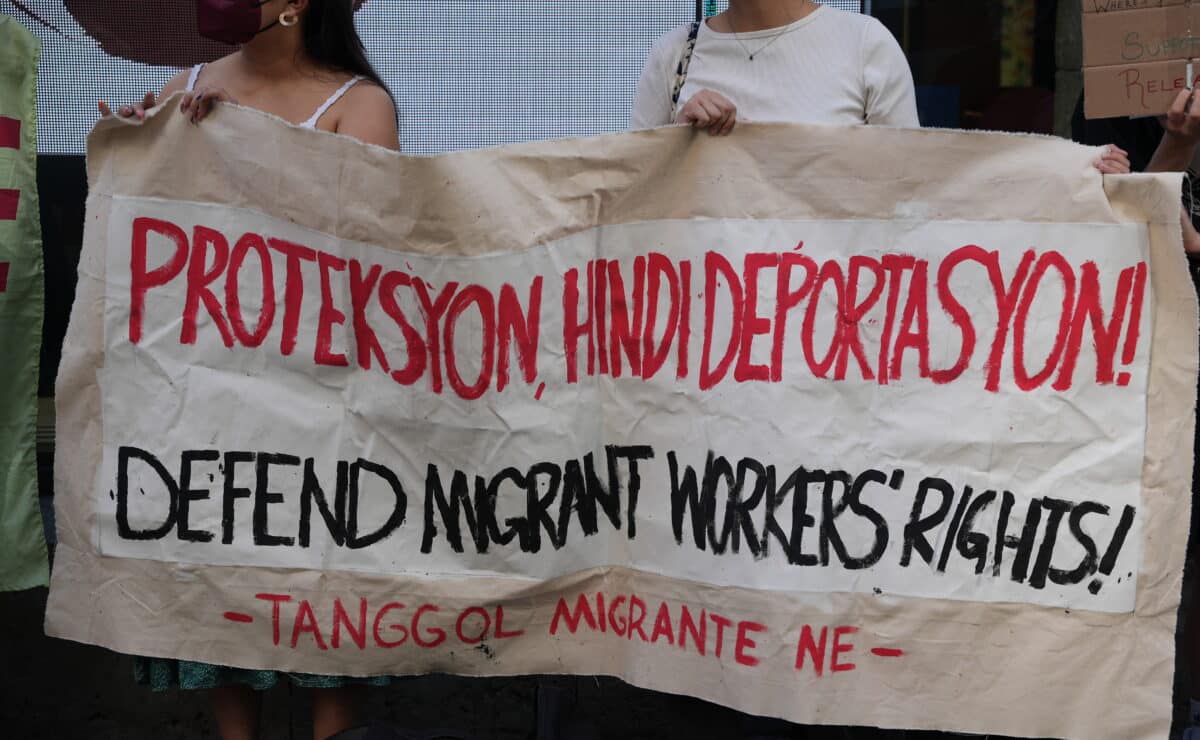 PROTEKSYON, HINDI DEPORTASYON!
DEFEND MIGRANT WORKERS' RIGHTS!
- TANGGOL MIGRANTE NE -